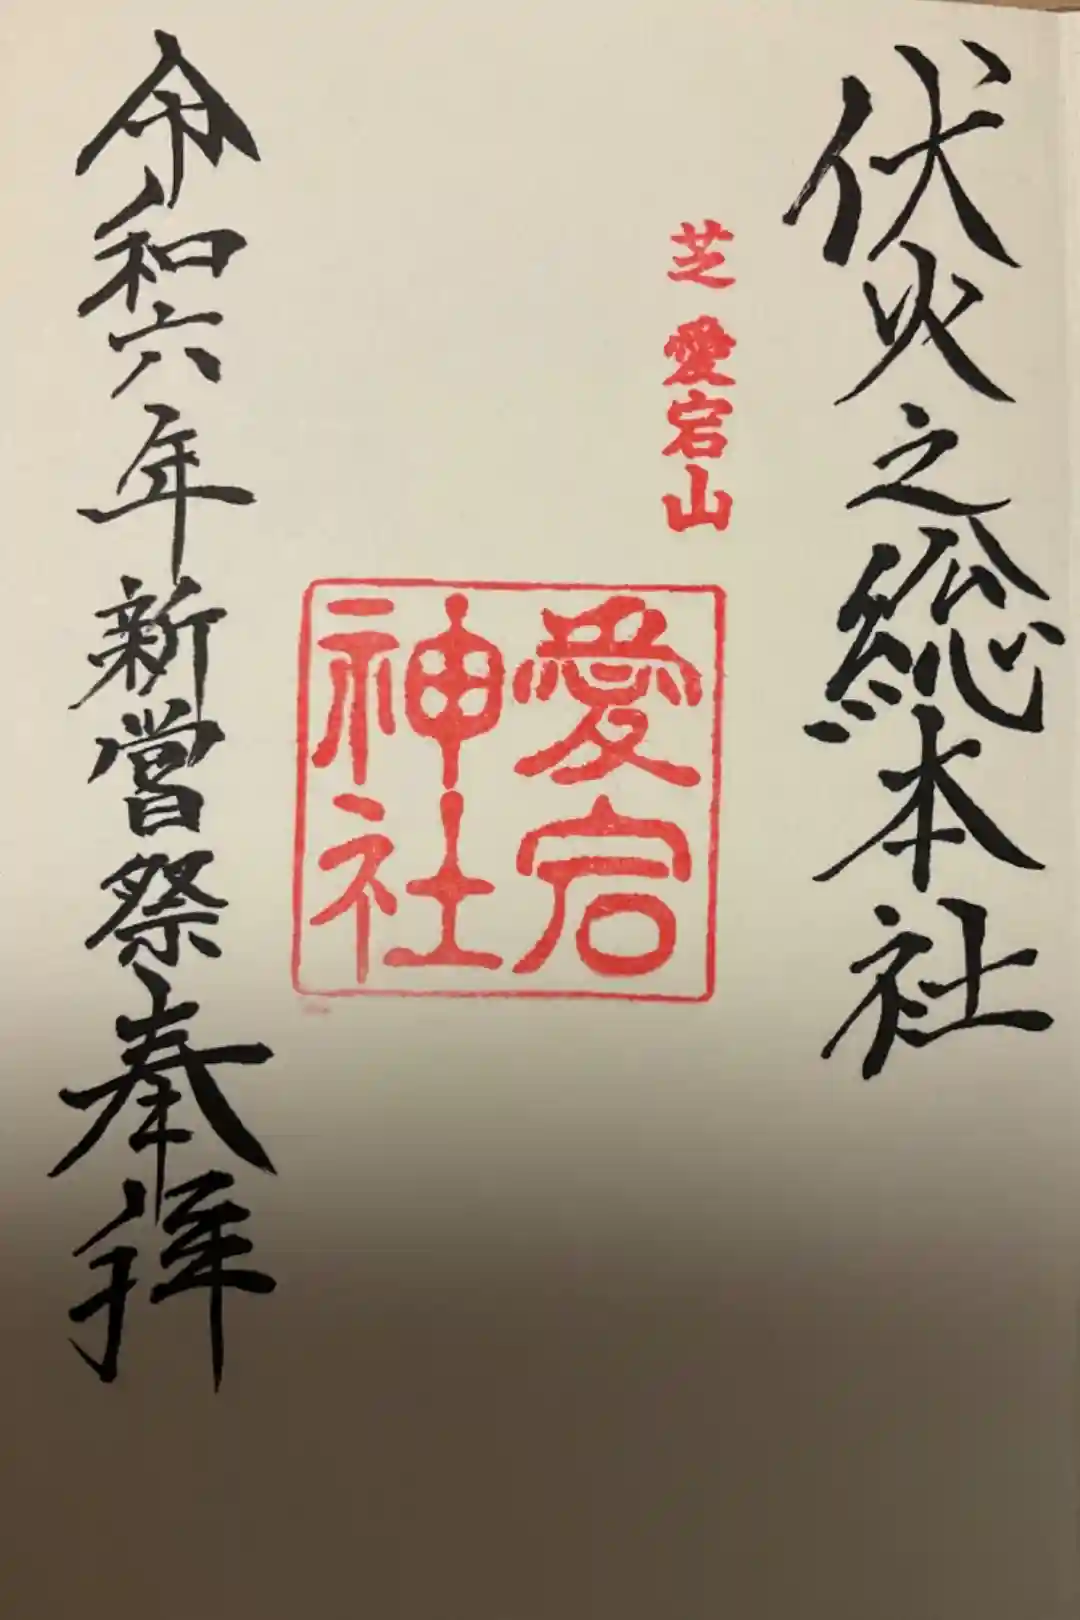 伏火之総本社
芝 愛宕山
愛宕
神社
令和六年新嘗祭奉拝